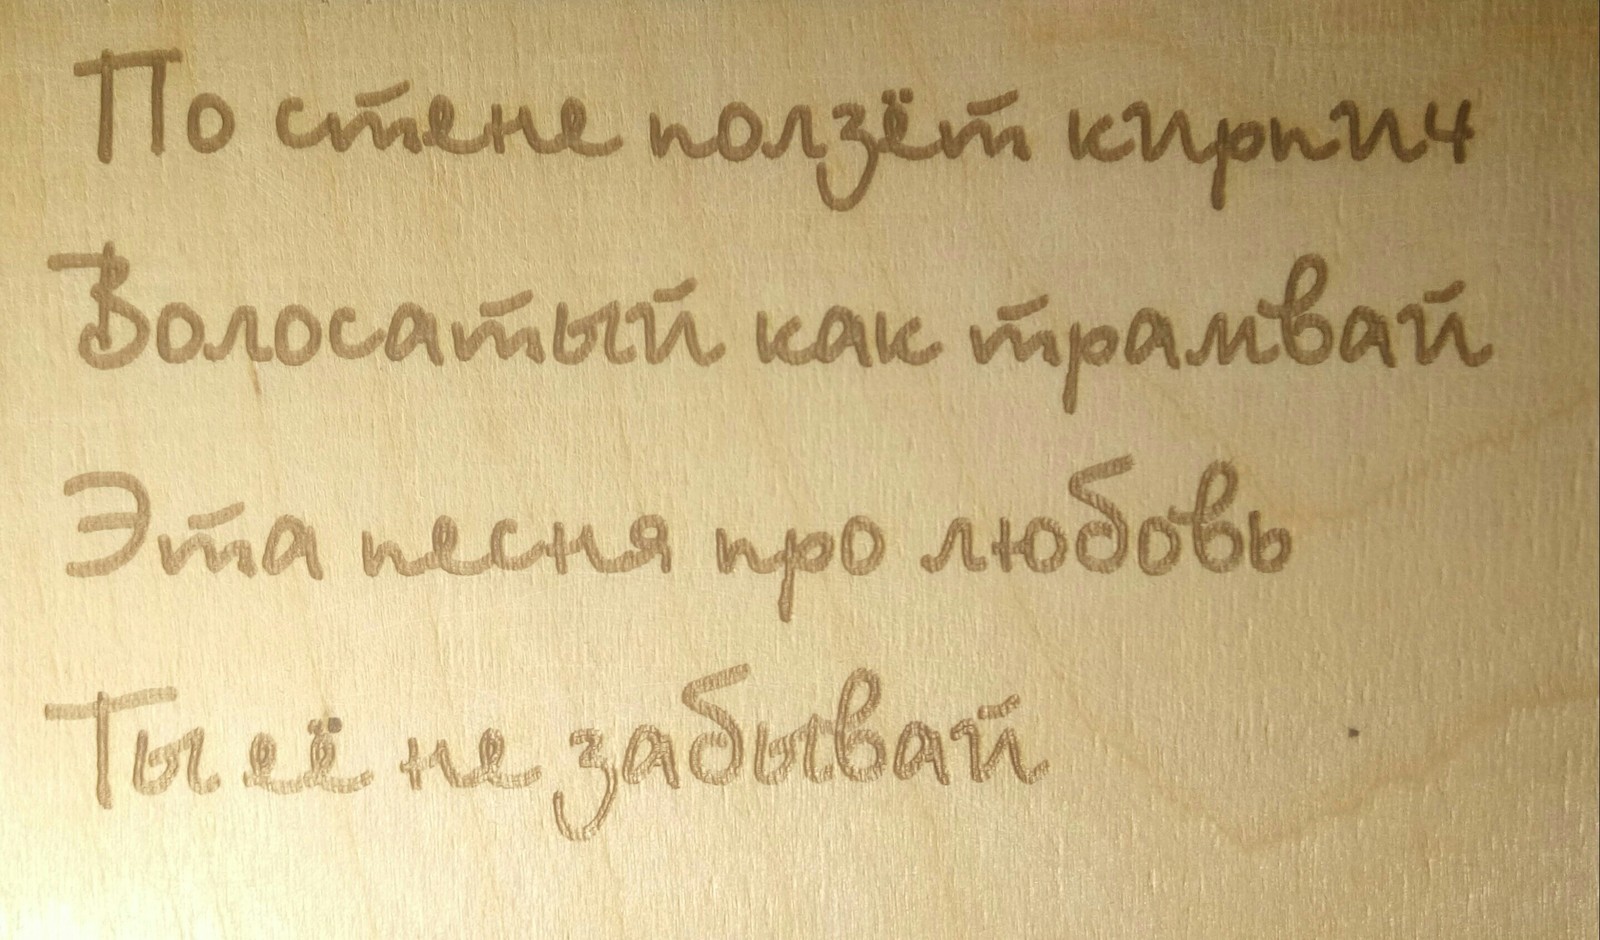 По стене ползёт кирпич
Волосатый как трамвай
Эта песня про любовь
Ты её не забывай